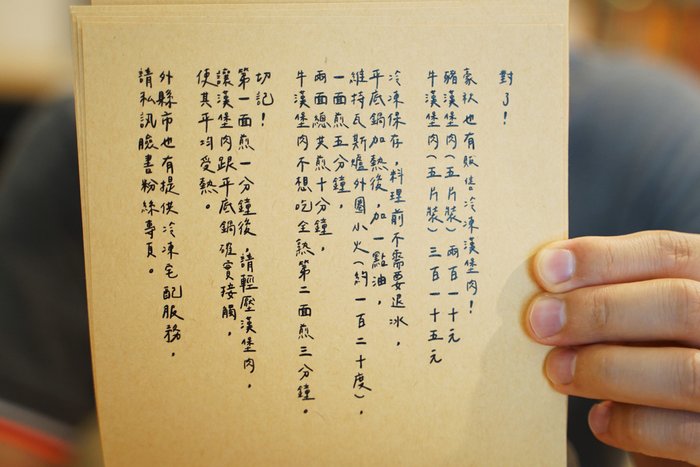 對了！
豪狀也有販售冷凍漢堡肉！
豬漢堡肉（五片裝）兩百一十元
牛漢堡肉（五片裝）三百一十五元
冷凍保存，料理前不需要退冰，
平底鍋加熱後，加一點油，
維持瓦斯爐外圈小火（約一百二十度），
一面煎五分鐘，
兩面總共煎十分鐘，
牛漢堡肉不想吃全熟第二面煎三分鐘。
切記！
第一面煎一分鐘後，請輕壓漢堡肉，
讓漢堡肉跟平底鍋確實接觸，
使其平均受熱。
外縣市也有提供冷凍宅配服務，
請私訊臉書粉絲專頁。